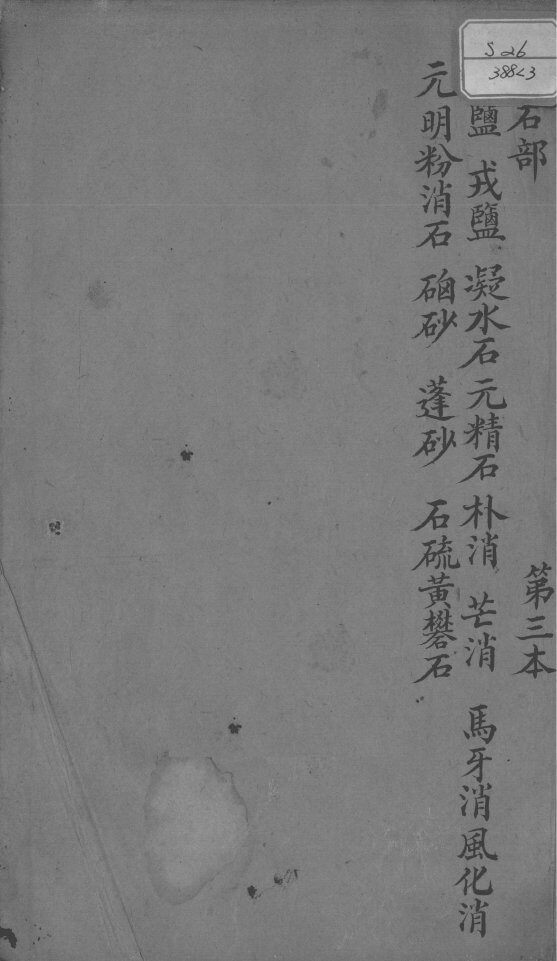 S26
388<3
石部 第三本
鹽 戎鹽 凝水石 元精石 朴消 芒消 馬牙消 風化消
元明粉 消石 硇砂 蓬砂 石硫黃 礬石